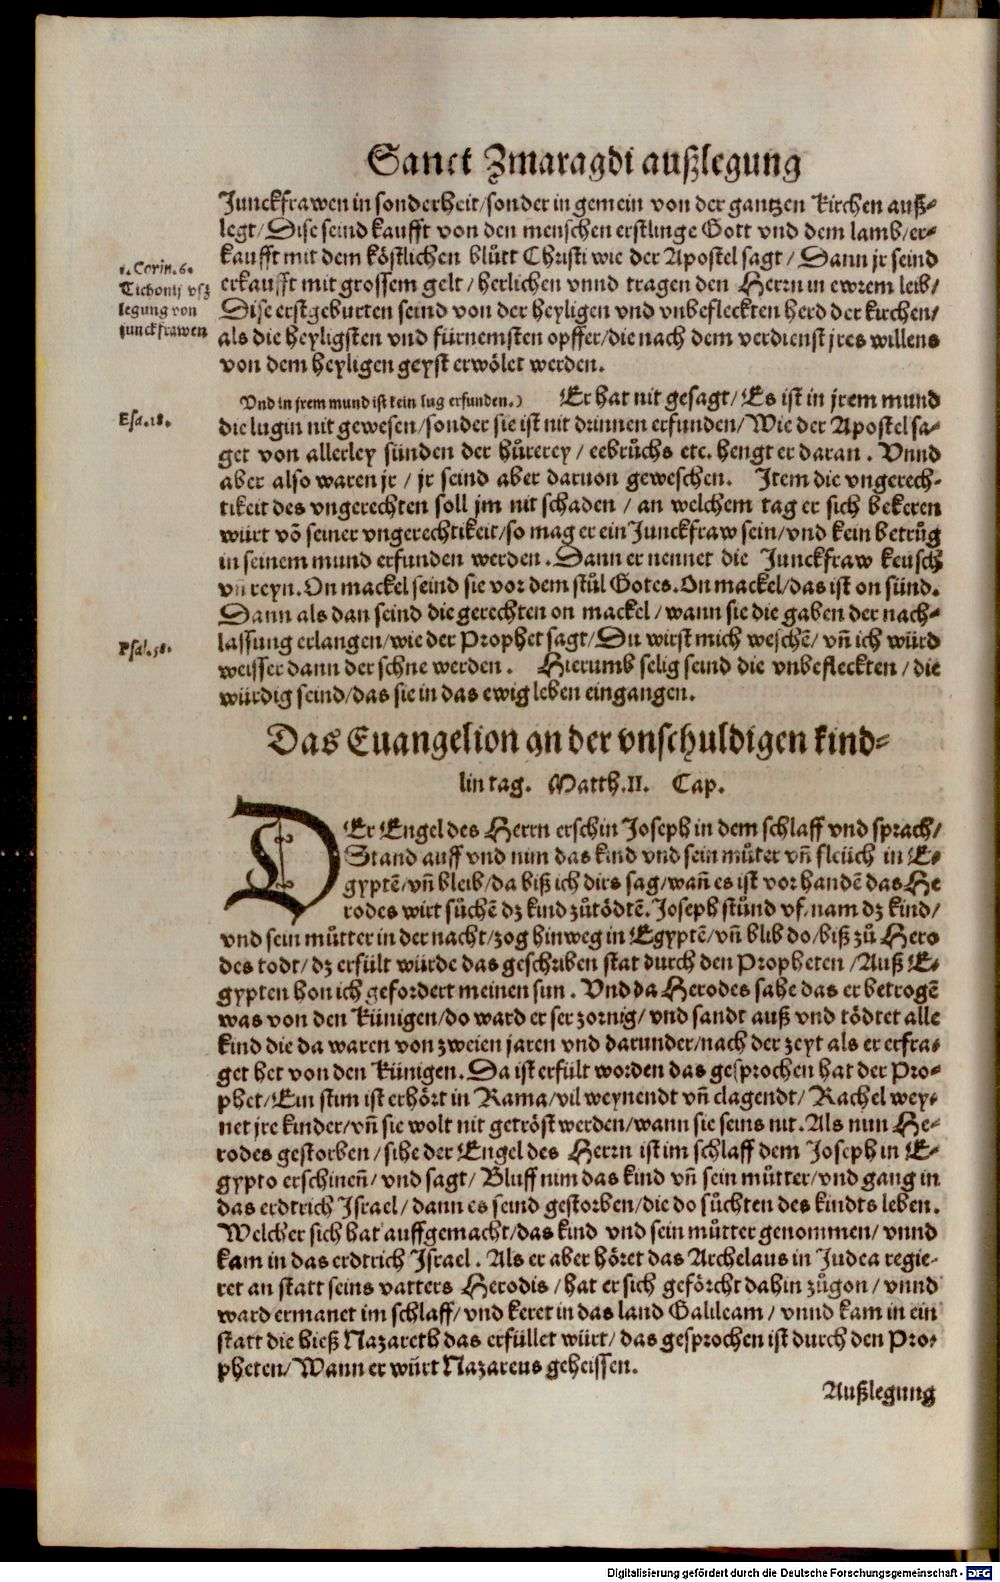 Sanct Zmaragdi außlegung
Junckfrawen in sonderheit/sonder in gemein von der gantzen Kirchen auß-
legt/Dise seind kaufft von den menschen erstlinge Gott vnd dem lamb/er-
kaufft mit dem köstlichen blůtt Christi wie der Apostel sagt/ Dann jr seind
1. Corin. 6.
erkaufft mit grossem gelt/ herlichen vnnd tragen den Herrn in ewrem leib/
Tichonij vsz
legung von
junckfrawen
Dise erstgeburten seind von der heyligen vnd vnbefleckten herd der kirchen/
als die heyligsten vnd fürnemsten opffer/die nach dem verdienst jres willens
von dem heyligen geyst erwölet werden.
Vnd in jrem mund ist kein lug erfunden.) Er hat nit gesagt/ Es ist in jrem mund
Esa. 18.
die lugin nit gewesen/sonder sie ist nit drinnen erfunden/Wie der Apostel sa-
get von allerley sünden der hůrerey/ eebrůchs etc. hengt er daran. Vnnd
aber also waren jr/ jr seind aber daruon geweschen. Item die vngerech-
tikeit des vngerechten soll jm nit schaden/ an welchem tag er sich bekeren
würt võ seiner vngerechtikeit/so mag er ein Junckfraw sein/vnd kein betrůg
in seinem mund erfunden werden. Dann er nennet die Junckfraw keüsch
vñ reyn. On mackel seind sie vor dem stůl Gotes. On mackel/das ist on sünd.
Dann als dan seind die gerechten on mackel/ wann sie die gaben der nach-
lassung erlangen/wie der Prophet sagt/Du wirst mich weschẽ/ vñ ich würd
Psal. 58.
weisser dann der schne werden. Hierumb selig seind die vnbefleckten/ die
würdig seind/das sie in das ewig leben eingangen.
Das Euangelion an der vnschuldigen kind-
lin tag. Matth. II. Cap.
DEr Engel des Herrn erschin Joseph in dem schlaff vnd sprach/
Stand auff vnd nim das kind vnd sein můter vñ fleüch in E-
gyptẽ/vñ bleib/da biß ich dirs sag/wañ es ist vorhandẽ das He
rodes wirt sůchẽ dz kind zůtödtẽ. Joseph stůnd vf/nam dz kind/
vnd sein můtter in der nacht/zog hinweg in Egyptẽ/vñ blib do/biß zů Hero
des todt/dz erfült würde das geschriben stat durch den Propheten/Auß E-
gypten hon ich gefordert meinen sun. Vnd da Herodes sahe das er betrogẽ
was von den Künigen/do ward er ser zornig/ vnd sandt auß vnd tödtet alle
kind die da waren von zweien jaren vnd darunder/nach der zeyt als er erfra-
get het von den Künigen. Da ist erfült worden das gesprochen hat der Pro-
phet/Ein stim ist erhört in Rama/vil weynendt vñ clagendt/ Rachel wey-
net jre kinder/vñ sie wolt nit getröst werden/wann sie seins nit. Als nun He-
rodes gestorben/ sihe der Engel des Herrn ist im schlaff dem Joseph in E-
gypto erschinenñ/ vnd sagt/ Bluff nim das kind vñ sein můtter/vnd gang in
das erdtrich Israel/ dann es seind gestorben/die do sůchten des kindts leben.
Welcher sich hat auffgemacht/das kind vnd sein můtter genommen/ vnnd
kam in das erdtrich Israel. Als er aber höret das Archelaus in Judea regie-
ret an statt seins vatters Herodis/ hat er sich geförcht dahin zůgon/ vnnd
ward ermanet im schlaff/ vnd keret in das land Galileam/ vnnd kam in ein
statt die hieß Nazareth das erfüllet würt/ das gesprochen ist durch den Pro-
pheten/Wann er würt Nazareus geheissen.
Außlegung
Digitalisierung gefördert durch die Deutsche Forschungsgemeinschaft - DFG